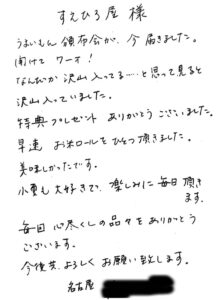 すえひろ屋 様
うまいもん頒布会が、今届きました。
開けて ワーオ!
なんだか沢山入ってる…と思って見ると
沢山入っていました。
特典プレゼント ありがとうございました。
早速 お米ロールをひとつ頂きました。
美味しかったです。
小生も大好きで、楽しみに毎日頂き
ます。
毎回 心尽くしの品々をありがとう
ございます。
今後共、よろしくお願い致します。
名古屋